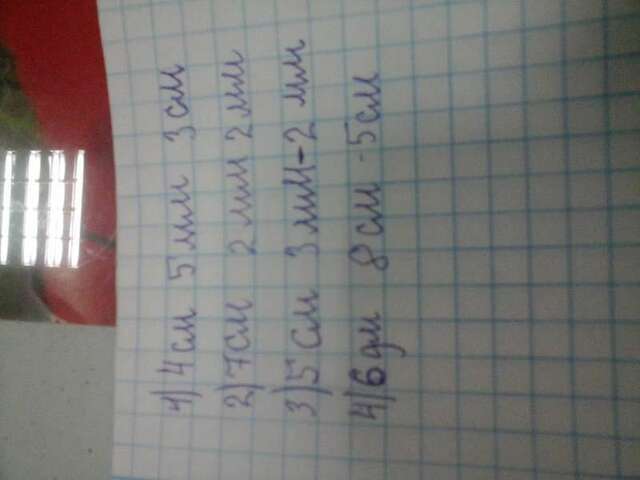 1) 4 см 5 мм 3 см
2) 7 см 2 мм 2 мм
3) 5 см 3 мм - 2 мм
4) 6 дм 8 см - 5 см